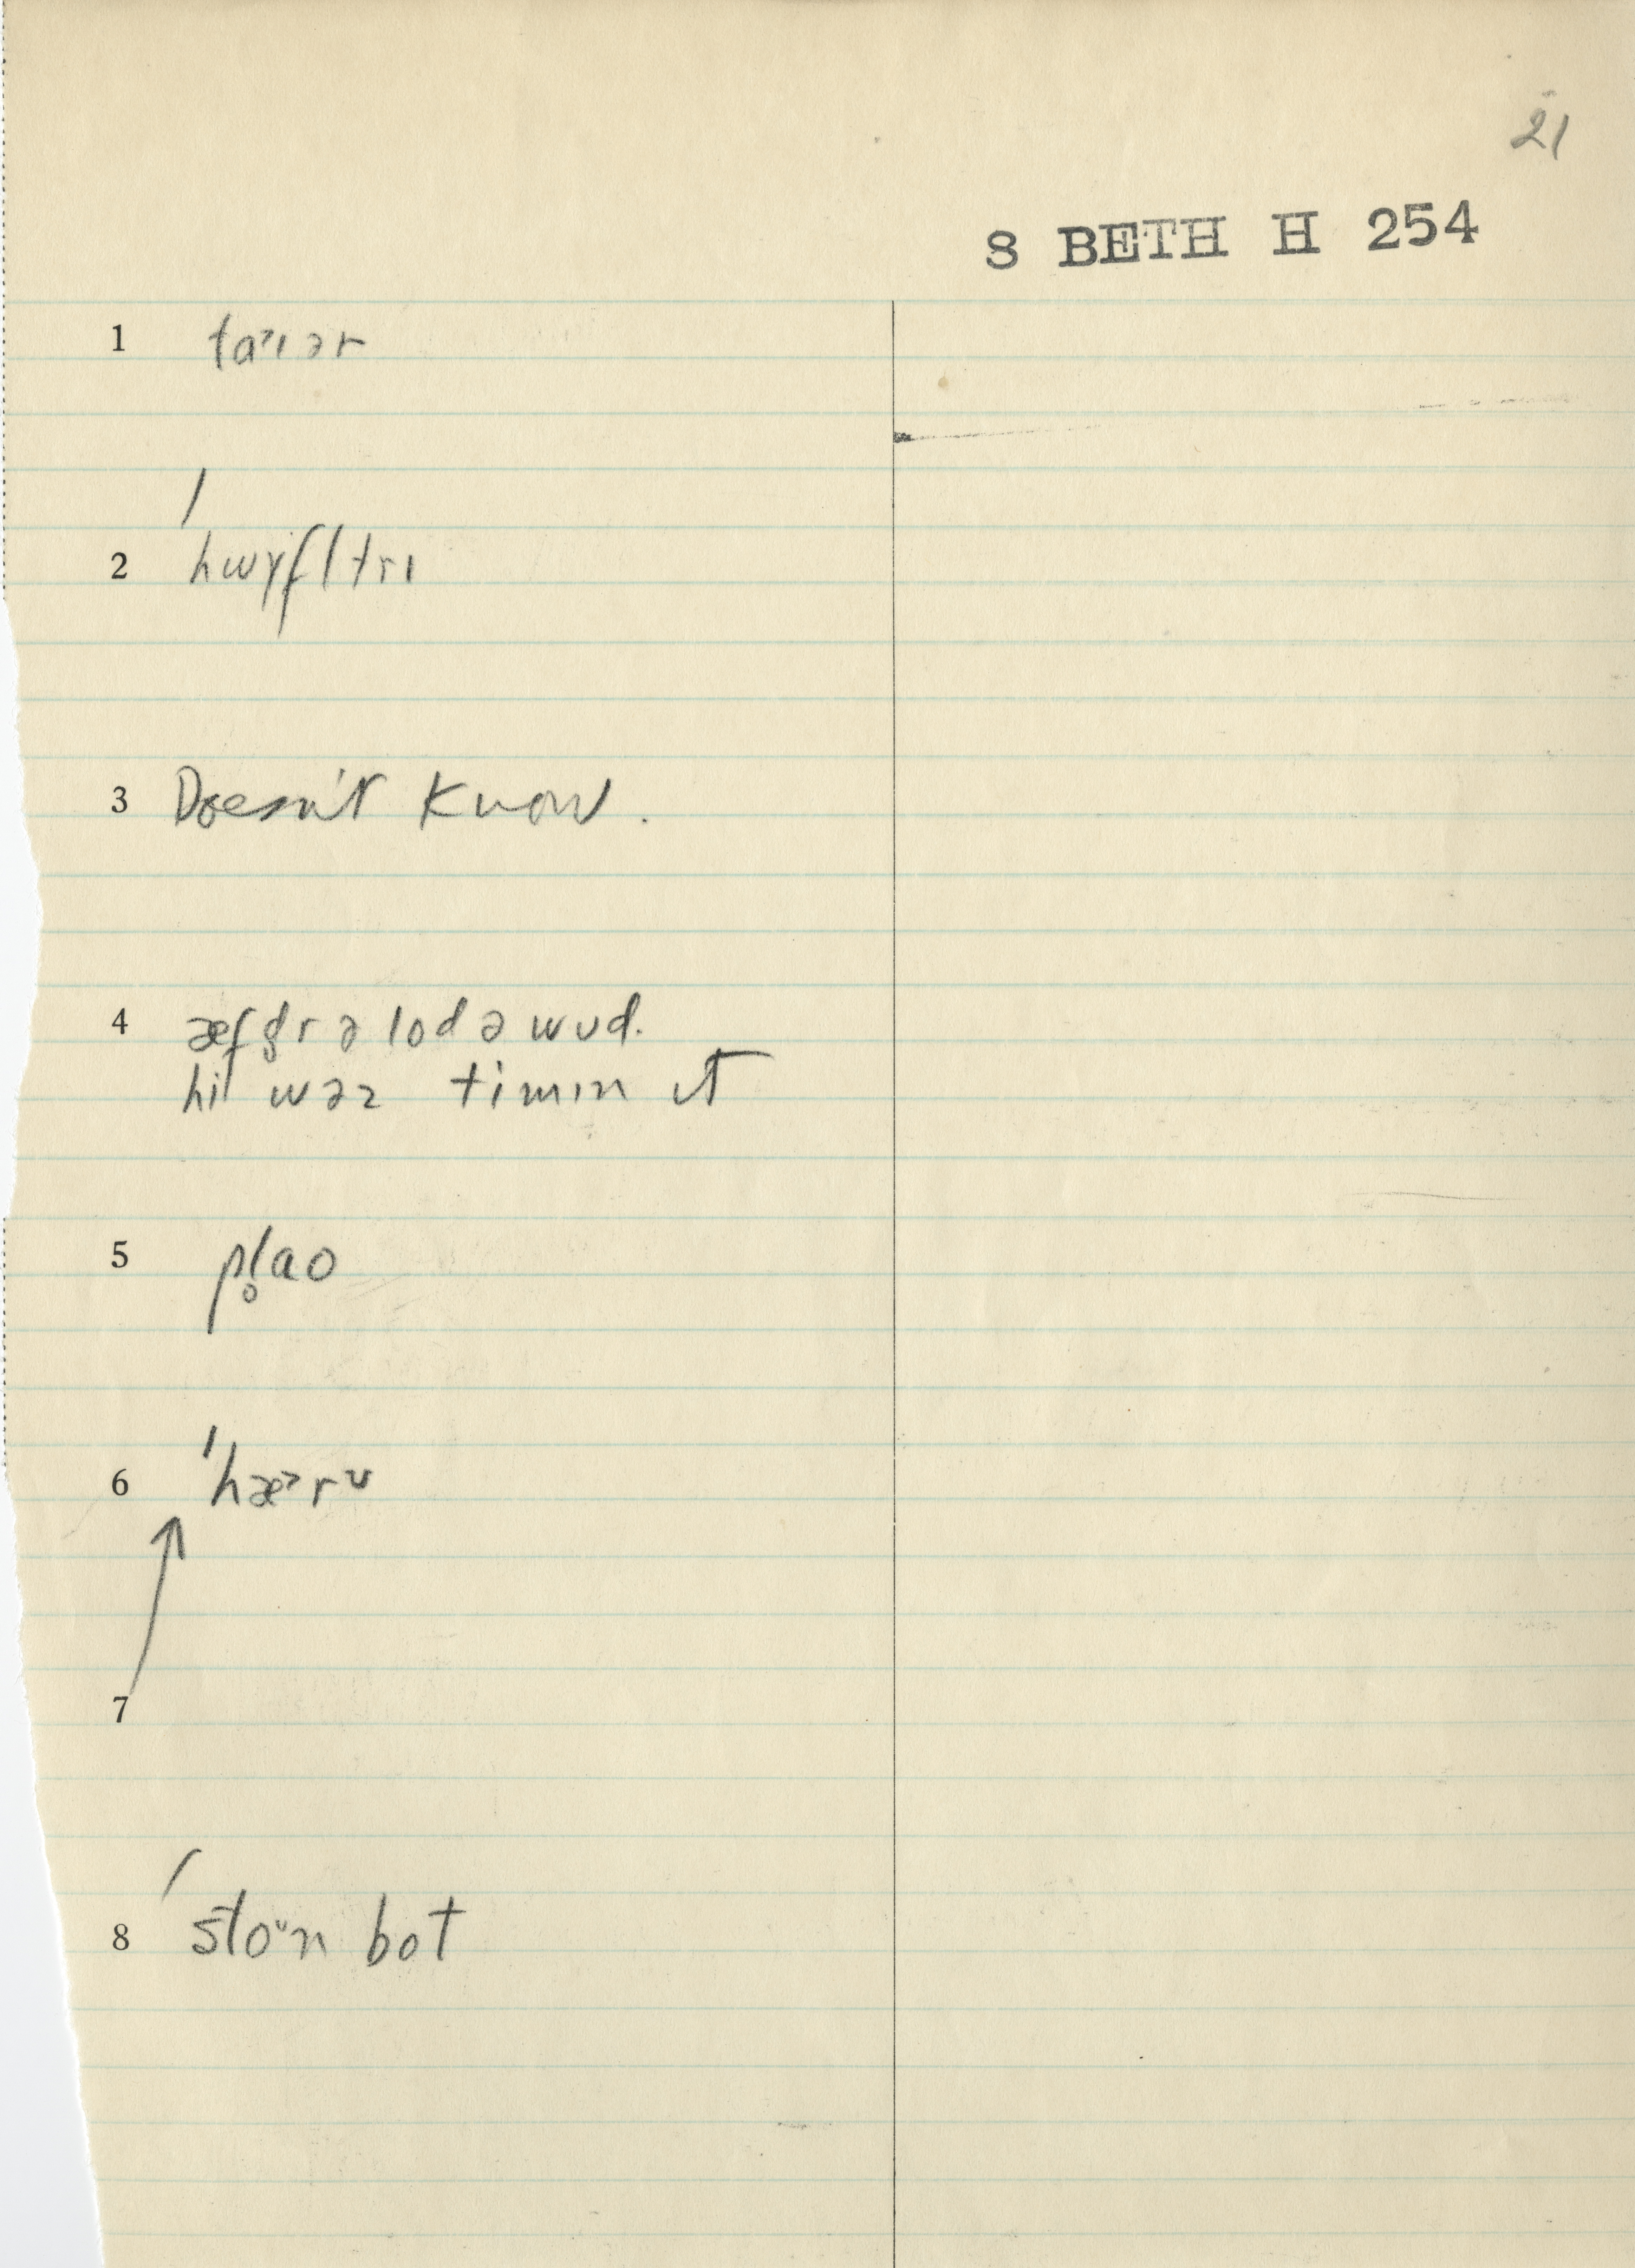 21
S BETH H 254
1 ta˃ɪər
/
2 hwɤfltrɪ
3 Doesn't Know.
4 æfd̥r ə lod ə wud.
hi wəz timɪn ɪt
5 pl̥ao
6 'hæ˃rᶷ
7
/
8 stoᶷn bot